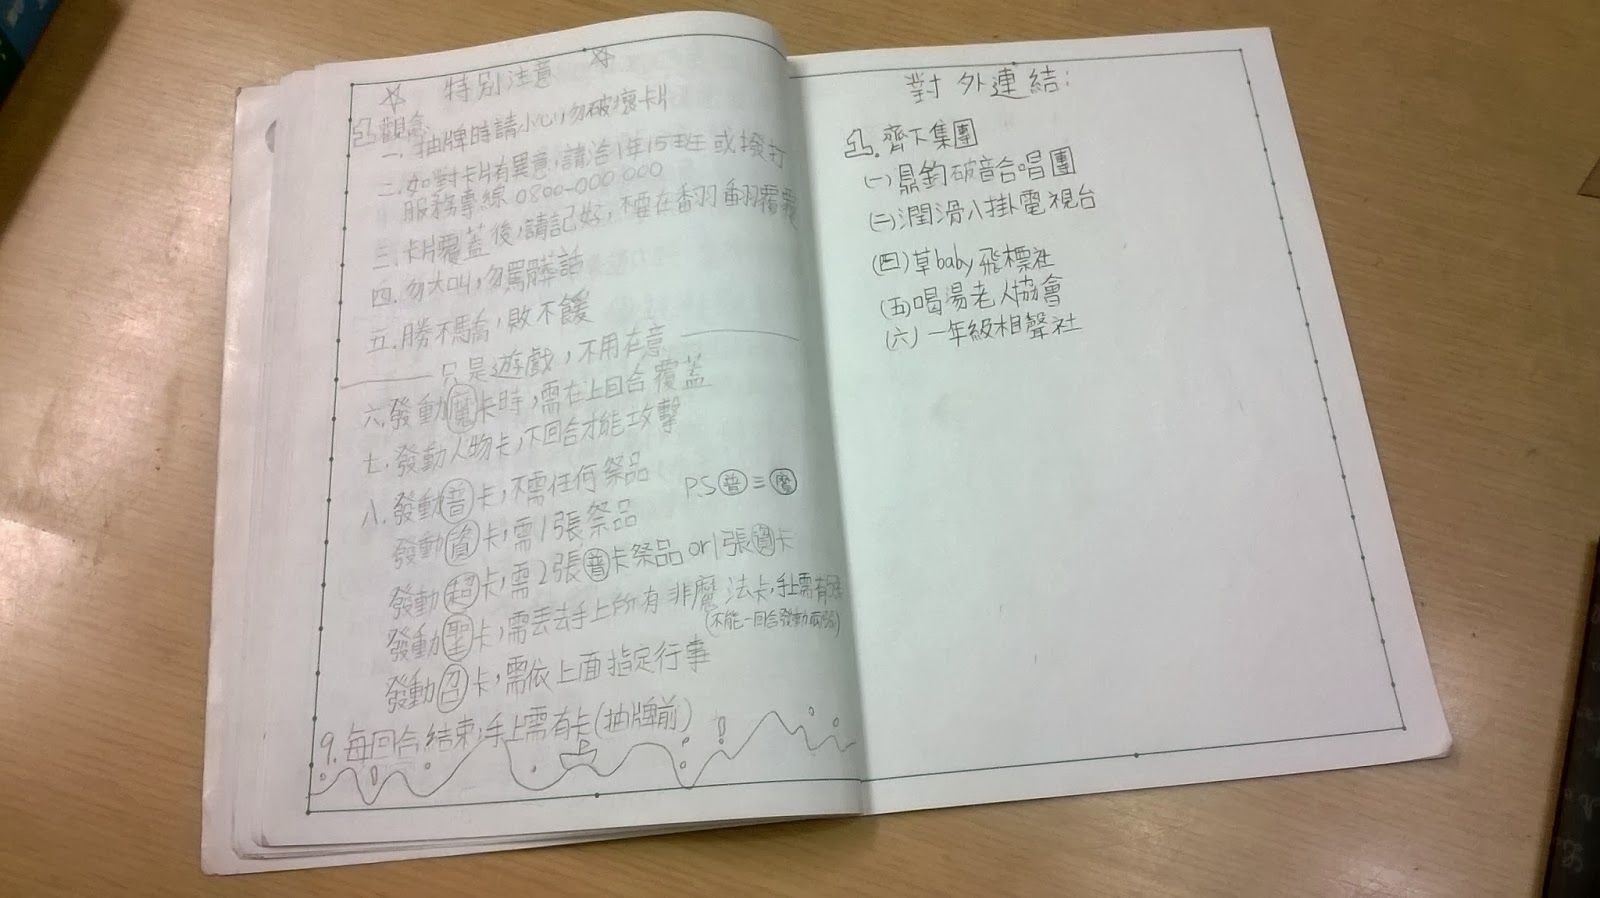 ☆ 特別注意 ☆
凸觀念
一. 抽牌時請小心,勿破壞卡片
二. 如對卡片有異意,請洽1年15班 或撥打
服務專線 0800-000 000
三. 卡片覆蓋後,請記好,不要在翻翻覆覆
四. 勿大叫,勿罵髒話
五. 勝不驕,敗不餒
只是遊戲,不用在意
六. 發動魔卡時,需在上回合覆蓋
七. 發動人物卡,下回合才能攻擊
八. 發動普卡,不需任何祭品
P.S 普≡魔
發動資卡,需1張祭品
發動超卡,需2張普卡祭品 or 1張資卡
發動聖卡,需丟去手上所有非魔法卡,手上需有
(不能一回合發動兩張)
發動召卡,需依上面指定行事
9. 每回合結束,手上需有卡(抽牌前)
對外連結:
凸. 齊下集團
(一) 鼎鈞破音合唱團
(二) 潤滑八掛電視台
(四) 草baby飛標社
(五) 喝湯老人協會
(六) 一年級相聲社